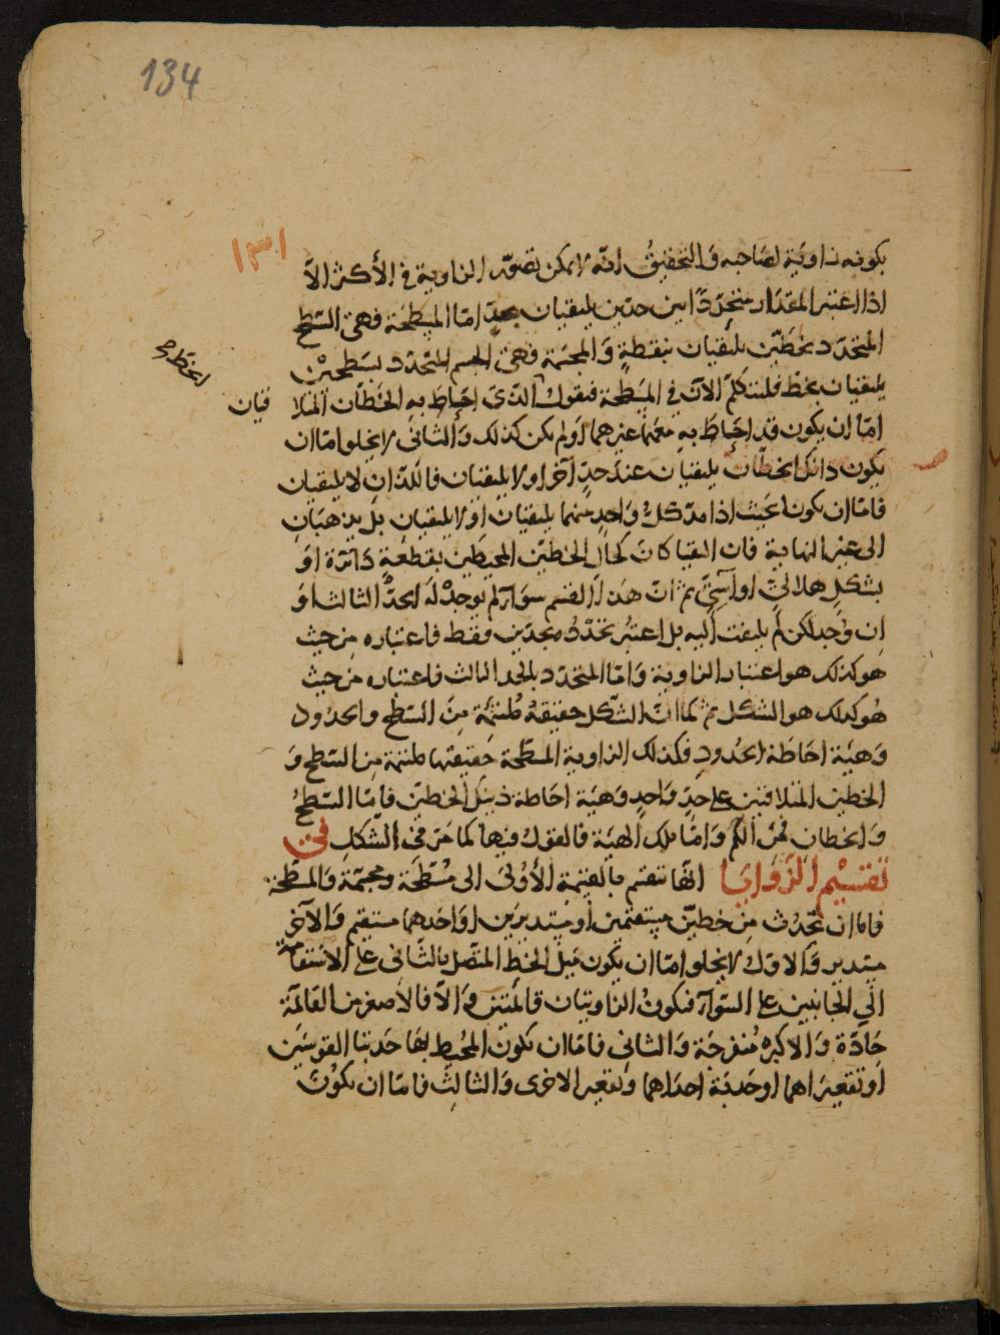 134
١٣١
بكونه زاوية لصاحبه وَالتحقيقُ انّه لا يمكن تصوّر الزاوية في الأكثر الّا
اذا اعتبر المقدار متحدّدًا بين حدّين يلتقيان بحدّ امّا المسطحَة فهى السّطح
المتحدّد بخطّين يلتقيان بنقطةٍ وَالمجسّمة فهى الجسم المتحدّد بسَطحيْن
يلتقيان بخطّ فلنتكلّم الآن في المسَطّحة فنقول الذّى احَاطَ به الخطّان المتلا
قيان
الخطوط
امّا ان يكون قد احَاطَ به معهما غيرهما اوْ لم يكن كذلك وَالثانى لا يخلو امّا ان
يكون ذانك الخطّان يلتقيان عند حدٍّ آخر او لا يلتقيان فاللّذان لا يلتقيان
فامّا ان يكونا بحَيث اذا مدّ كلّ وَاحدٍ منهما يلتقيان اوْ لا يلتقيانِ بلْ يذهبَانِ
الى غير النهاية فان التقيا كانَ كحال الخطّين المحيطين بقطعةٍ دَائرة اوْ
بشكلٍ هلالىٍّ او آسِىٍّ ثم انّ هَذا القسم سوَاء لم يوجدْ لَه الحدّ الثالث اوْ
ان وُجد لكن لم يلتفت اليه بل اعتبُر تحدّدُه بحدّين فقط فاعتباره من حيث
هوَ كذلك هو اعتبار الزاوية وَامّا المتحدّد بالحد الثالث فاعتباره من حيث
هُو كذلك هو الشكل ثم كما انّ الشّكل حقيقةٌ مُلتئمة مِنَ السّطح والحدُود
وَهيئة احَاطَة الحدُودِ فكذلك الزاوية المسطّحة حَقيقتها ملتئمة من السّطح وَ
الخطّين المتلاقيَين على حدٍّ وَاحدٍ وَهيئة احَاطة ذينك الخطين فامّا السّطحُ
وَالخطان فمن الكمّ وَامّا تلك الهيئة فالقول فيها كما مَرّ فى الشّكلِ فى
تقسيْم الزّوَايَا انّها تنقسم بالقسمة الأوْلى الى مُسَطّحَة ومجسّمة وَالمسَطّحة
فاما ان تحدُث مِن خطيّن مستقيمين او مستديرَين اوْ احَدهما مستقيم وَالآخر
مستدير وَالاوّل لا يخلو امّا ان يكون ميل الخط المتّصل بالثانى على الاسْتقامة
الى الجَانبين على السّوَاء فتكونُ الزاويتان قائمتين وَالّا فالاصغر من القائمة
حَادّة وَالاكبر مُنفرجَة وَالثانى فامّا ان يكون المحُيط بهَا حَدبتا القوسَين
اوْ تقعيراهما او حَدبَة احدَاهما وَتقعير الاخرى وَالثالث فامّا ان يكوْن